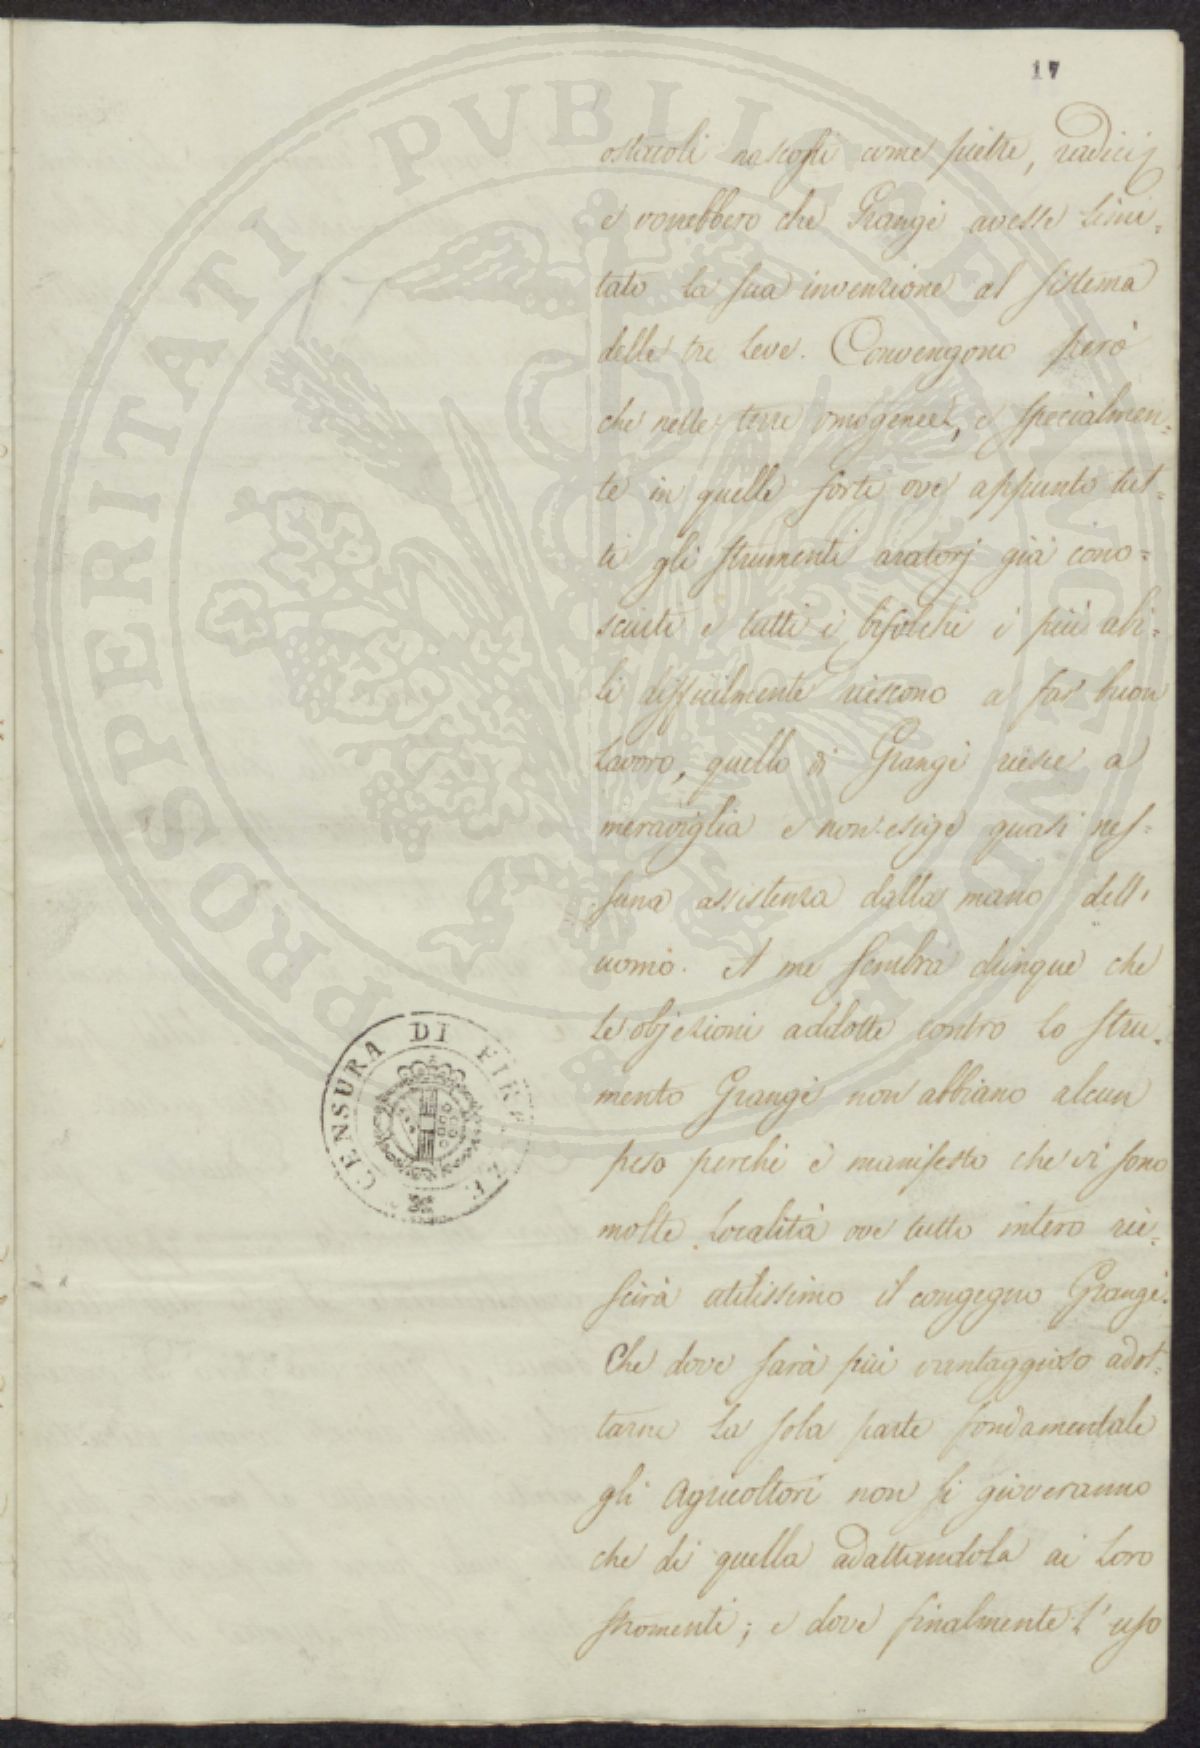 17
ostacoli nascosti come pietre, radici
e vorrebbero che Grangè avesse limi=
tato la sua invenzione al sistema
delle tre leve. Convengono però
che nelle terre omogenee, e specialmen=
te in quelle forti ove appunto tut=
ti gli strumenti aratorj già cono=
sciuti e tutti i bifolchi i più abi=
li difficilmente riescono a far buon
lavoro, quello di Grangè riesce a
meraviglia e non esige quasi nes=
suna assistenza dalla mano dell'
uomo. A me sembra dunque che
le objezioni addotte contro lo stru=
mento Grangè non abbiano alcun
peso perchè è manifesto che vi sono
molte località ove tutto intero rie=
scirà utilissimo il congegno Grangè.
Che dove sarà più vantaggioso adot=
tarne la sola parte fondamentale
gli Agricoltori non si gioveranno
che di quella adattandola ai loro
stromenti; e dove finalmente l'uso
CENSURA DI FIRENZE
PROSPERITATI PUBLICAE AUGENDAE